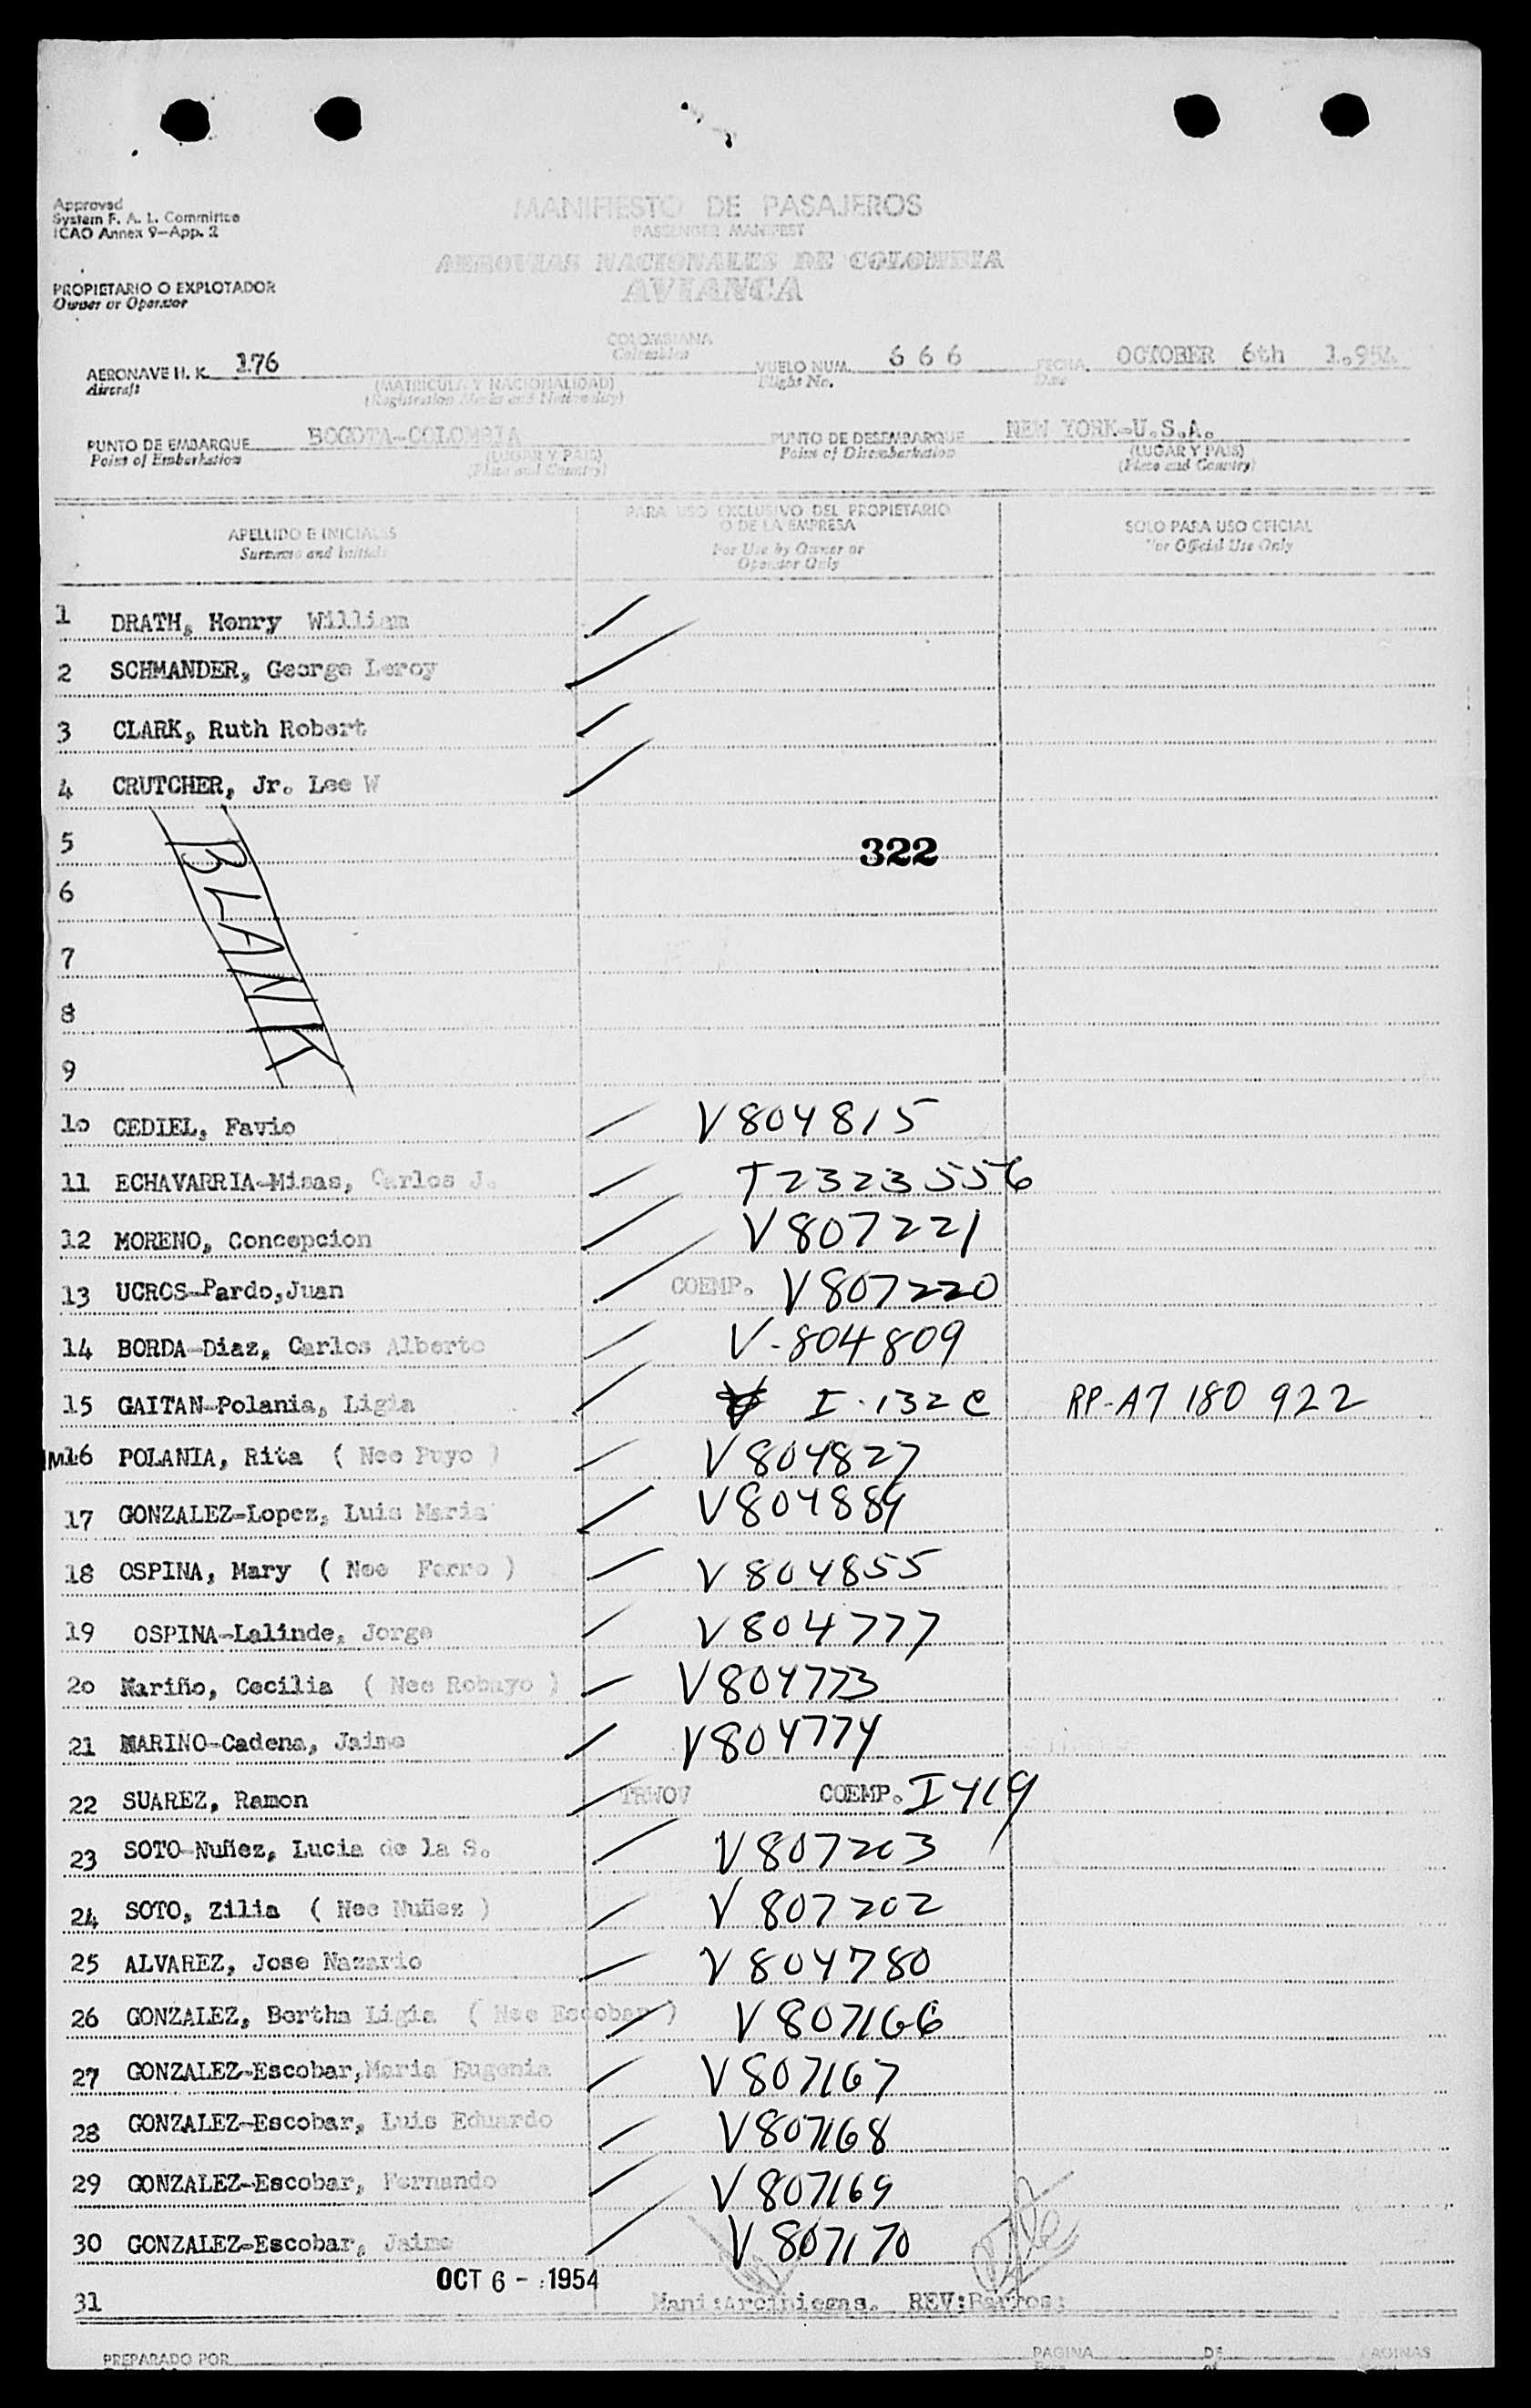 Approved
System F. A. L. Committee
ICAO Annex 9-App. 2
MANIFIESTO DE PASAJEROS
PASSENGER MANIFEST
AEROVIAS NACIONALES DE COLOMBIA
AVIANCA
PROPIETARIO O EXPLOTADOR
Owner or Operator
COLOMBIANA
Colombian
AERONAVE H. K. 176
Aircraft
(MATRICULA Y NACIONALIDAD)
(Registration Marks and Nationality)
VUELO NUM. 6 6 6
Flight No.
FECHA OCTOBER 6th 1.954
Date
PUNTO DE EMBARQUE BOGOTA-COLOMBIA
Point of Embarkation
(LUGAR Y PAIS)
(Place and Country)
PUNTO DE DESEMBARQUE NEW YORK-U.S.A.
Point of Disembarkation
(LUGAR Y PAIS)
(Place and Country)
APELLIDO E INICIALES
Surname and Initials
PARA USO EXCLUSIVO DEL PROPIETARIO
O DE LA EMPRESA
For Use by Owner or
Operator Only
SOLO PARA USO OFICIAL
For Official Use Only
1 DRATH, Henry William
2 SCHMANDER, George Leroy
3 CLARK, Ruth Robert
4 CRUTCHER, Jr. Lee W
5 322
6
7
8
9
BLANK
1o CEDIEL, Favio V804815
11 ECHAVARRIA-Misas, Carlos J. T2323556
12 MORENO, Concepcion V807221
13 UCROS-Pardo,Juan COEMP. V807220
14 BORDA-Diaz, Carlos Alberto V-804809
15 GAITAN-Polania, Ligia I-132 C RP-A7 180 922
M16 POLANIA, Rita ( Nee Puyo ) V804827
17 GONZALEZ-Lopez, Luis Maria V804889
18 OSPINA, Mary ( Nee Ferro ) V804855
19 OSPINA-Lalinde, Jorge V804777
2o Mariño, Cecilia ( Nee Robayo ) V804773
21 MARINO-Cadena, Jaime V804774
22 SUAREZ, Ramon TRWOV COEMP. I419
23 SOTO-Nuñez, Lucia de la S. V807203
24 SOTO, Zilia ( Nee Nuñez ) V807202
25 ALVAREZ, Jose Nazario V804780
26 GONZALEZ, Bertha Ligia ( Nee Escobar ) V807166
27 GONZALEZ-Escobar,Maria Eugenia V807167
28 GONZALEZ-Escobar, Luis Eduardo V807168
29 GONZALEZ-Escobar, Fernando V807169
30 GONZALEZ-Escobar, Jaime V807170
OCT 6 - 1954
31 Mani:Arciniegas. REV:Barros:
PREPARADO POR
PAGINA DE PAGINAS